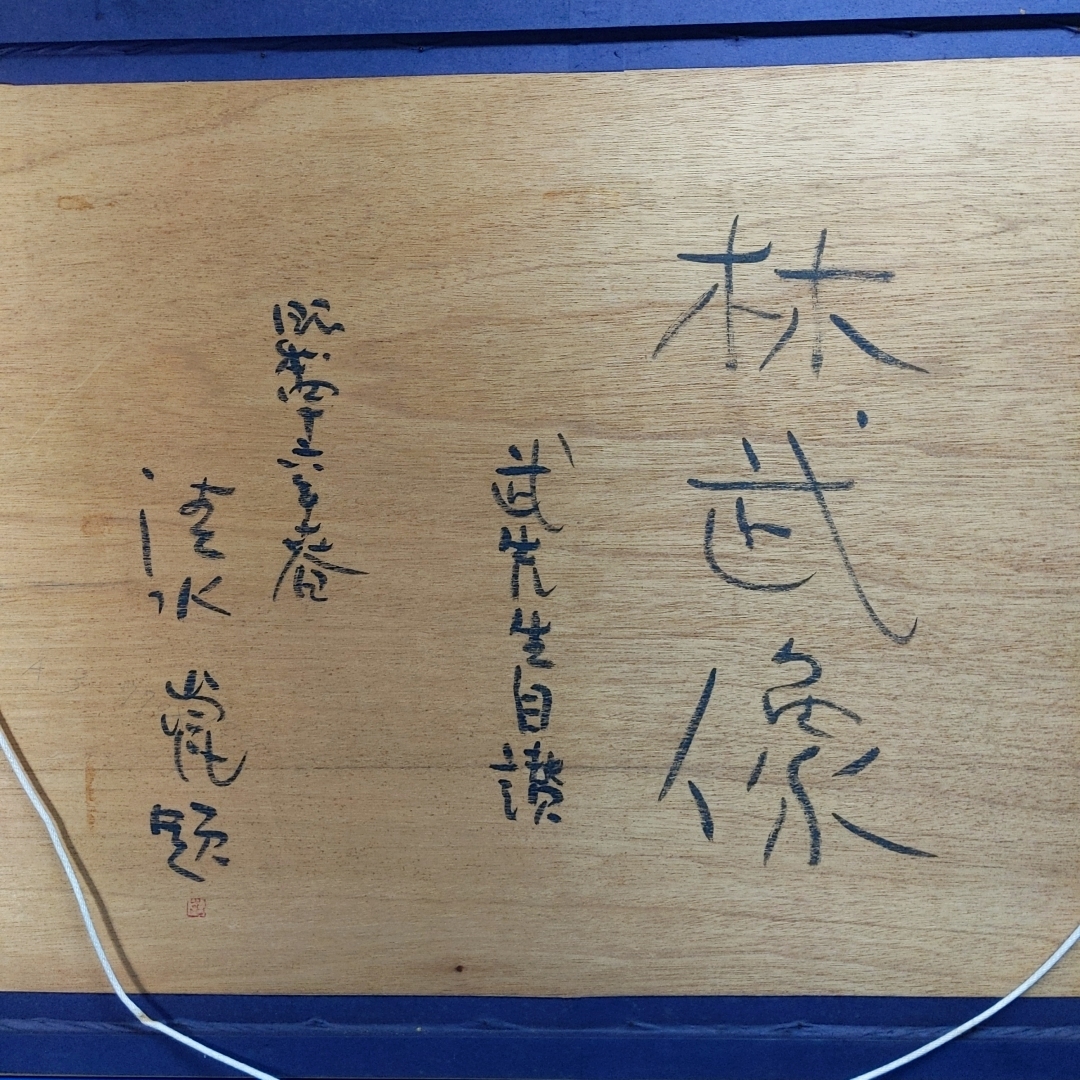 林武像
武先生自讃
昭和四十六年春
清水崑題